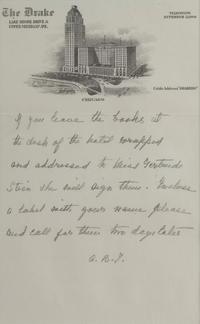 The Drake
LAKE SHORE DRIVE &
UPPER MICHIGAN AVE.
TELEPHONE
SUPERIOR 2200
CHICAGO
Cable Address "DRAKOTEL"
If you leave the books at
the desk of the hotel wrapped
and addressed to Miss Gertrude
Stein she will sign them. Enclose
a label with your name please
and call for them two days later
A. B. T.